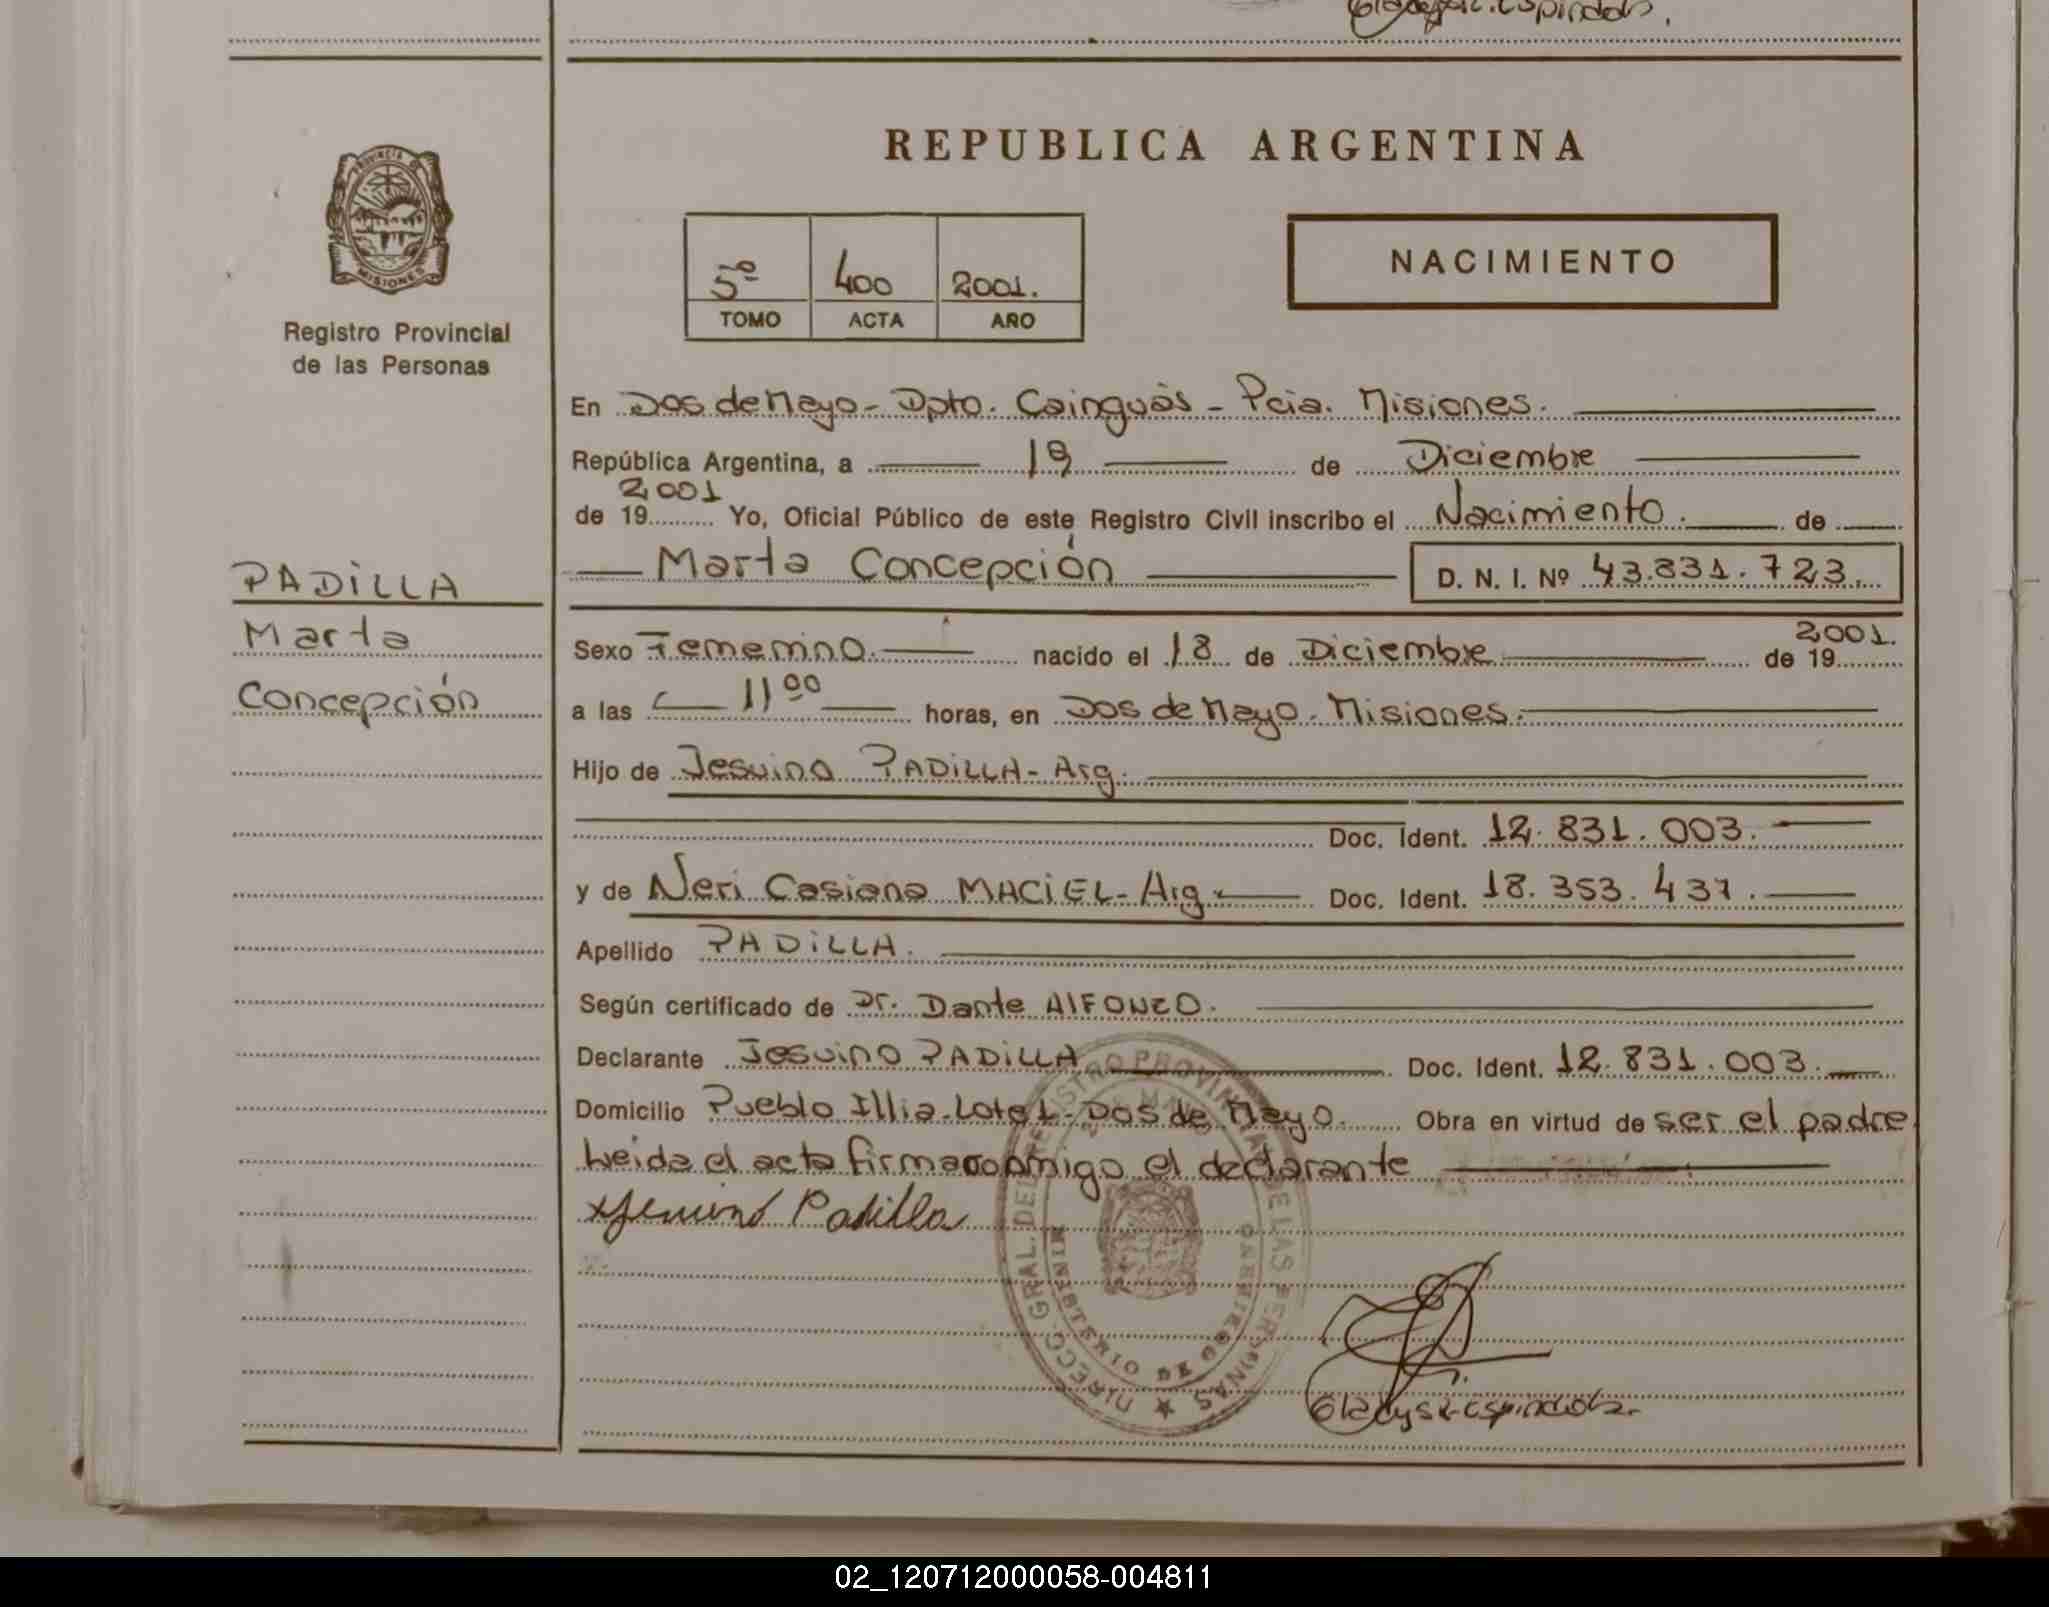 Gladys R. Espindola.
PROVINCIA DE
MISIONES
Registro Provincial
de las Personas
PADILLA
Marta
Concepción
REPUBLICA ARGENTINA
5º 400 2001.
TOMO ACTA AÑO
NACIMIENTO
En Dos de Mayo - Dpto. Cainguás - Pcia. Misiones.
República Argentina, a 19 de Diciembre
2001
de 19 Yo, Oficial Público de este Registro Civil inscribo el Nacimiento. de
Marta Concepción D. N. I. Nº 43.831.723.
Sexo Femenino. nacido el 18 de Diciembre de 19 2001.
a las 11 00 horas, en Dos de Mayo. Misiones.
Hijo de Jesuino PADILLA - Arg.
Doc. Ident. 12.831.003.
y de Neri Casiana MACIEL - Arg. Doc. Ident. 18.353.437.
Apellido PADILLA.
Según certificado de Dr. Dante AlFONZO.
Declarante Jesuino PADILLA Doc. Ident. 12.831.003.
Domicilio Pueblo Illia - Lote 1 - Dos de Mayo. Obra en virtud de ser el padre
Leida el acta firma conmigo el declarante
Jesuino Padilla
DIRECC. GRAL. DEL REGISTRO PROVINCIAL DE LAS PERSONAS
MINISTERIO DE GOBIERNO
Gladys R. Espindola.
02_120712000058-004811